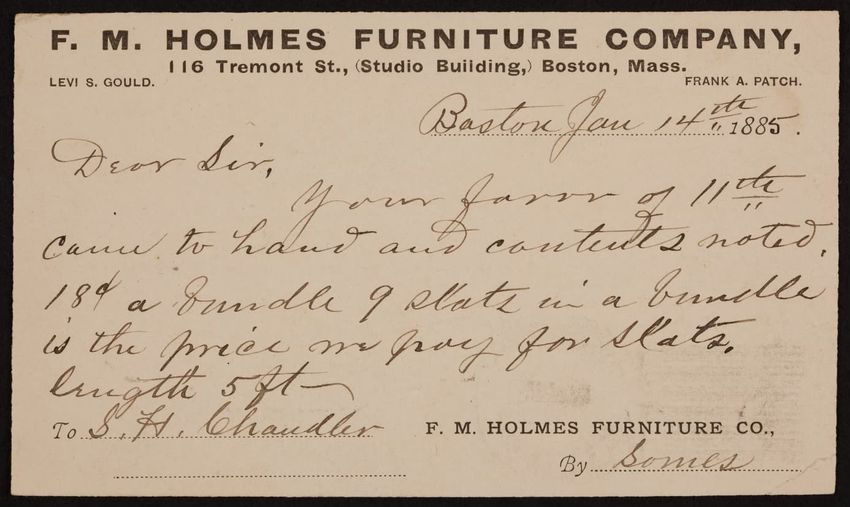 F. M. HOLMES FURNITURE COMPANY,
116 Tremont St., (Studio Building,) Boston, Mass.
LEVI S. GOULD. FRANK A. PATCH.
Boston Jan 14th 1885.
Dear Sir,
Your favor of 11th
came to hand and contents noted.
18¢ a bundle 9 slats in a bundle
is the price we pay for slats.
length 5 ft
To S. H. Chandler
F. M. HOLMES FURNITURE CO.,
By Somes